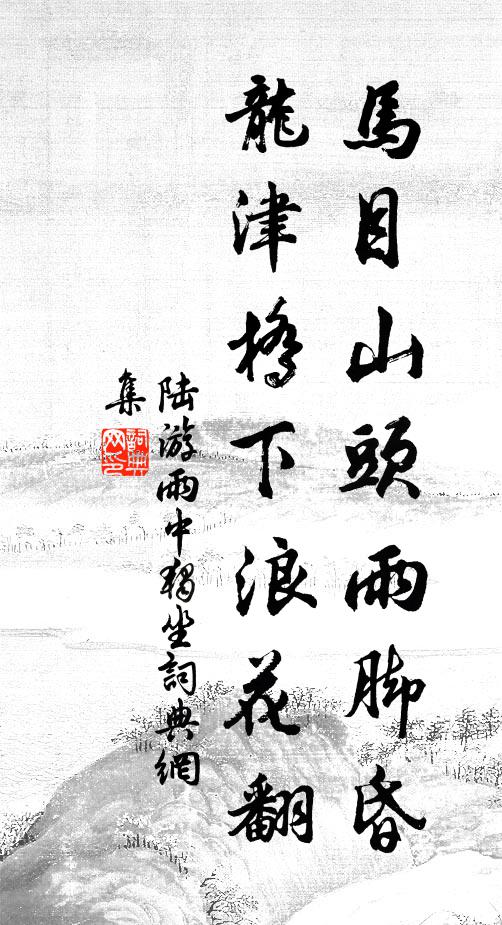 馬目山頭雨脚昏
龍津橋下浪花翻
陸游雨中獨坐詞典網
集
詞典网印